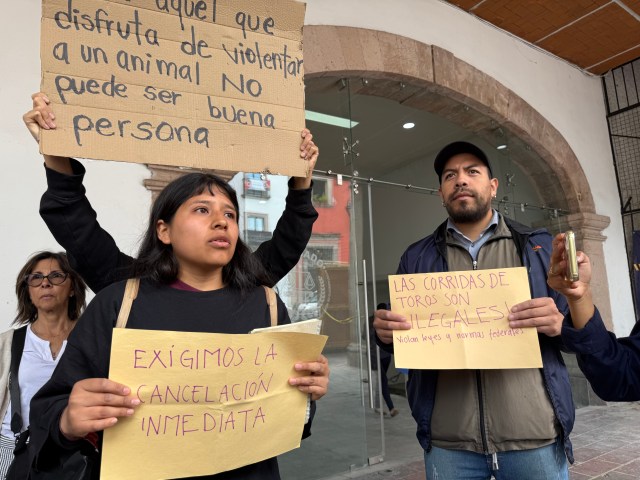 aquel que
disfruta de violentar
a un animal NO
puede ser buena
persona
EXIGIMOS LA
CANCELACIÓN
INMEDIATA
LAS CORRIDAS DE
TOROS SON
ILEGALES!
Violan leyes y normas federales